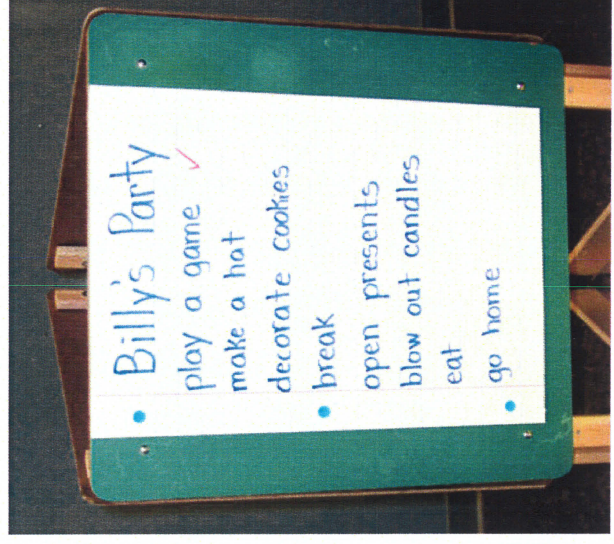 Billy's Party
play a game ✓
make a hat
decorate cookies
break
open presents
blow out candles
eat
go home